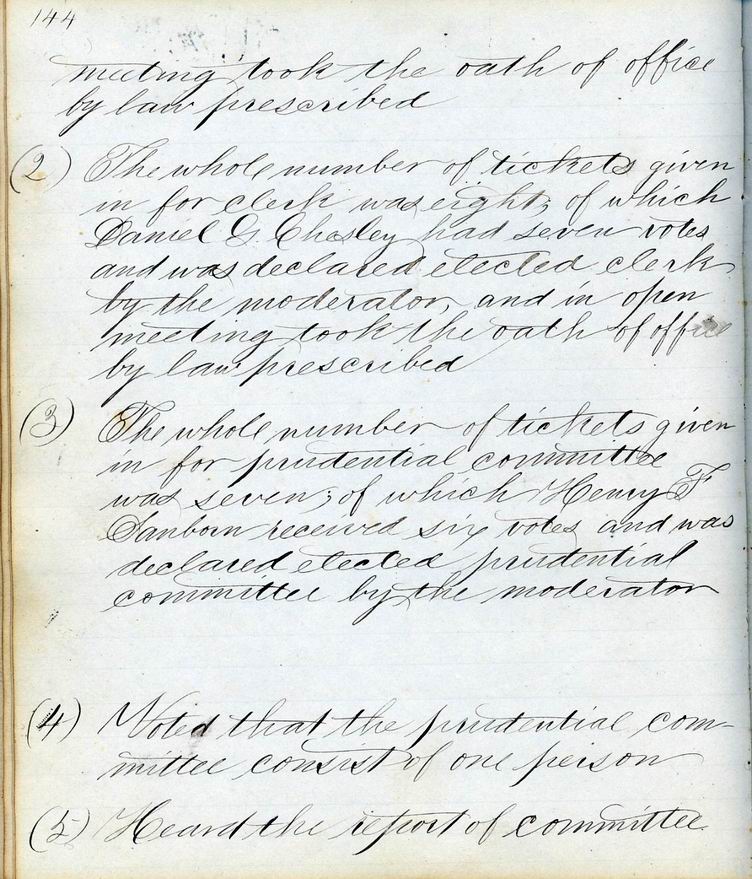 144
meeting took the oath of office
by law prescribed
(2) The whole number of tickets given
in for clerk was eight; of which
Daniel G. Chasley had seven votes
and was declared elected clerk
by the moderator, and in open
meeting took the oath of office
by law prescribed
(3) The whole number of tickets given
in for prudential committee
was seven; of which Henry F
Sanborn received six votes and was
declared elected prudential
committee by the moderator
(4) Voted that the prudential com-
mittee consist of one person
(5) Heard the report of committee